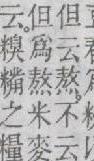 但云熬。不云
但爲熬米麥
云。糗糒之糧